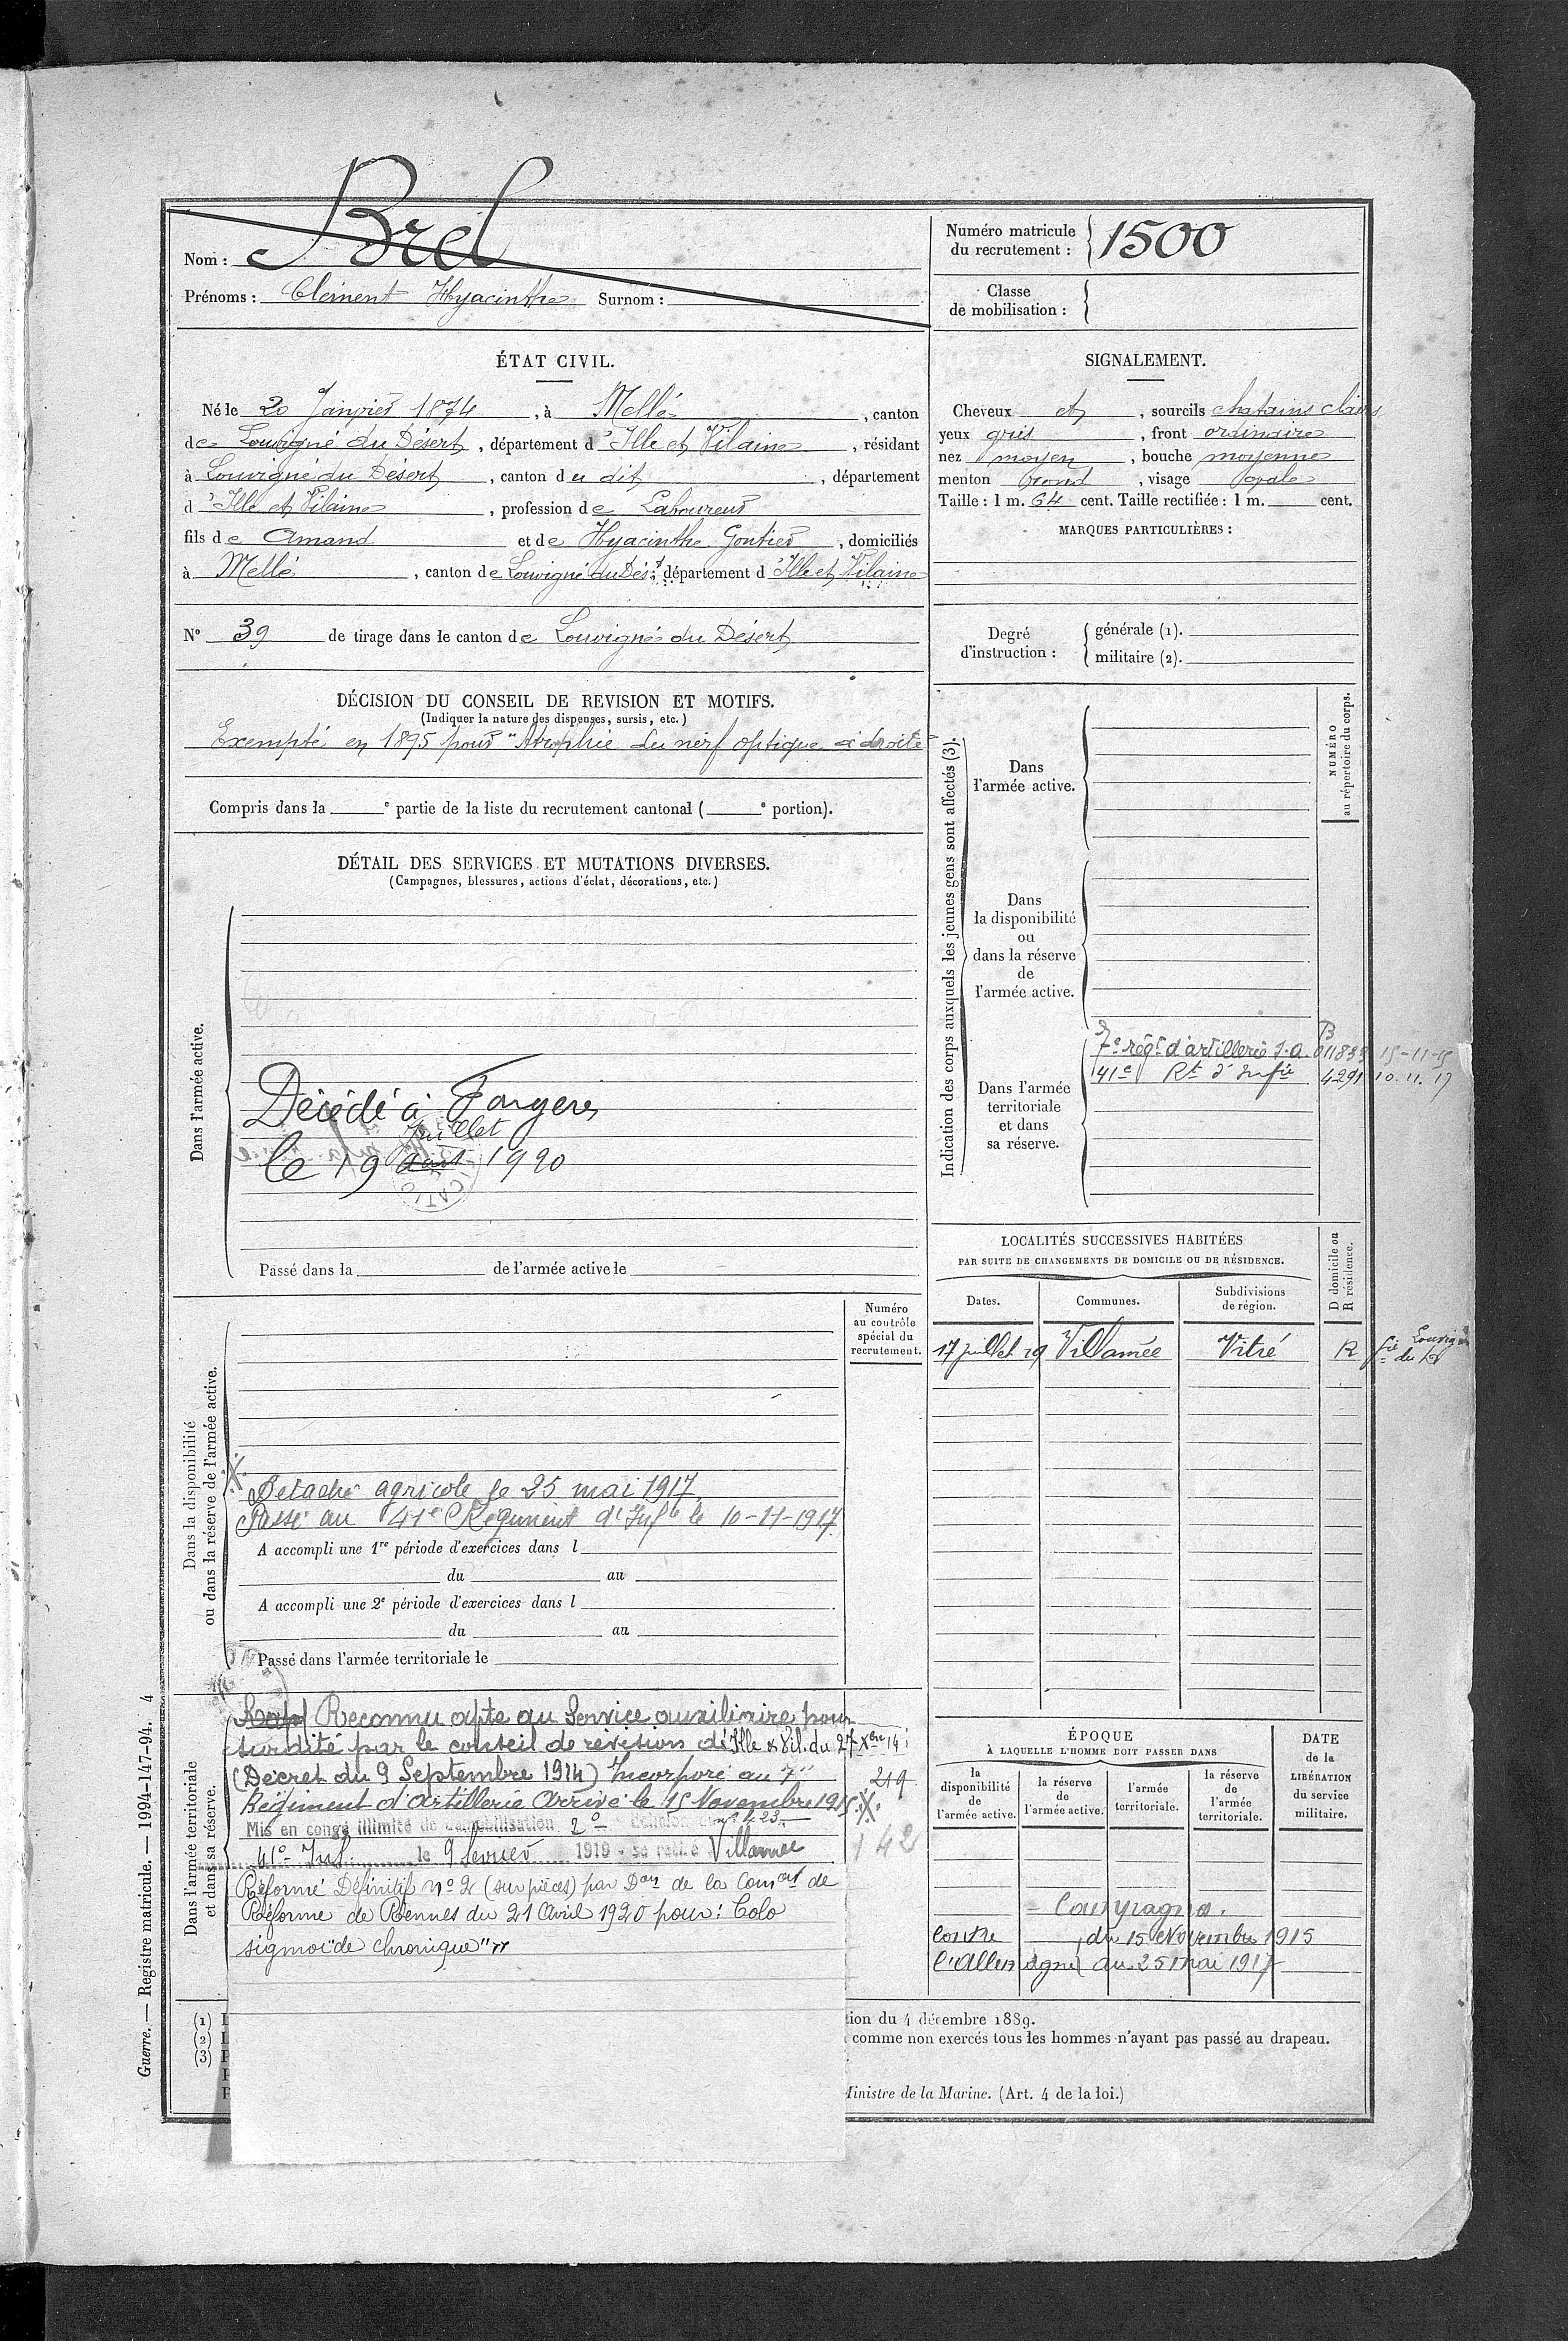 Nom : Brel
Prénoms : Clément Hyacinthe Surnom :
Numéro matricule du recrutement : 1500
Classe de mobilisation :
ÉTAT CIVIL.
Né le 20 Janvier 1874, à Mellé, canton
de Louvigné du Désert, département d'Ille et Vilaine, résidant
à Louvigné du Désert, canton du dit, département
d'Ille et Vilaine, profession de Laboureur
fils de Amand et de Hyacinthe Gontier, domiciliés
à Mellé, canton de Louvigné du Dés.t département d'Ille et Vilaine
N° 39 de tirage dans le canton de Louvigné du Désert
SIGNALEMENT.
Cheveux et, sourcils chatains clairs
yeux gris, front ordinaire
nez moyen, bouche moyenne
menton rond, visage ovale
Taille : 1 m. 64 cent. Taille rectifiée : 1 m. cent.
MARQUES PARTICULIÈRES :
Degré d'instruction :
générale (1).
militaire (2).
DÉCISION DU CONSEIL DE REVISION ET MOTIFS.
(Indiquer la nature des dispenses, sursis, etc.)
Exempté en 1895 pour "Atrophie du nerf optique à droite
Compris dans la e partie de la liste du recrutement cantonal ( e portion).
DÉTAIL DES SERVICES ET MUTATIONS DIVERSES.
(Campagnes, blessures, actions d'éclat, décorations, etc.)
Dans l'armée active.
Décédé à Fougères
Juillet
le 19 Août 1920
Passé dans la de l'armée active le
Dans la disponibilité
ou dans la réserve de l'armée active.
Numéro
au contrôle
spécial du
recrutement.
X
Détaché agricole le 25 mai 1917
Passé au 41e Régiment d'Infie le 10-11-1917
A accompli une 1re période d'exercices dans l
du au
A accompli une 2e période d'exercices dans l
du au
Passé dans l'armée territoriale le
Dans l'armée territoriale
et dans sa réserve.
Reconnu apte au Service auxiliaire pour
surdité par le conseil de révision d'Ille & Vil. du 27 Xbre 14
(Décret du 9 Septembre 1914) Incorporé au 7e
Régiment d'Artillerie Arrivé le 15 Novembre 1915 X
219
Mis en congé illimité de démobilisation 2e Echelon n° 423
41e Inf. le 9 Février 1919 - se retire Villamée
142
Réformé Définitif n° 2 (sur pièces) par Don de la Comon de
Réforme de Rennes du 21 Avril 1920 pour : Colo
sigmoïde chronique"
Indication des corps auxquels les jeunes gens sont affectés (3).
NUMÉRO
au répertoire du corps.
Dans
l'armée active.
Dans
la disponibilité
ou
dans la réserve
de
l'armée active.
Dans l'armée
territoriale
et dans
sa réserve.
7e régt d'artillerie S.A. B 011833 15-11-15
41e Rt d'Infie 4291 10.11.17
LOCALITÉS SUCCESSIVES HABITÉES
PAR SUITE DE CHANGEMENTS DE DOMICILE OU DE RÉSIDENCE.
Dates. Communes. Subdivisions de région. D domicile ou R résidence.
17 juillet 19 Villamée Vitré R
ÉPOQUE
À LAQUELLE L'HOMME DOIT PASSER DANS
la disponibilité de l'armée active.
la réserve de l'armée active.
l'armée territoriale.
la réserve de l'armée territoriale.
DATE
de la
LIBÉRATION
du service
militaire.
- Campagnes.
Contre du 15 Novembre 1915
l'Allemagne au 25 mai 1917
(1)
(2)
(3)
tion du 4 décembre 1889.
comme non exercés tous les hommes n'ayant pas passé au drapeau.
Ministre de la Marine. (Art. 4 de la loi.)
Guerre. — Registre matricule. — 1994-147-94. 4